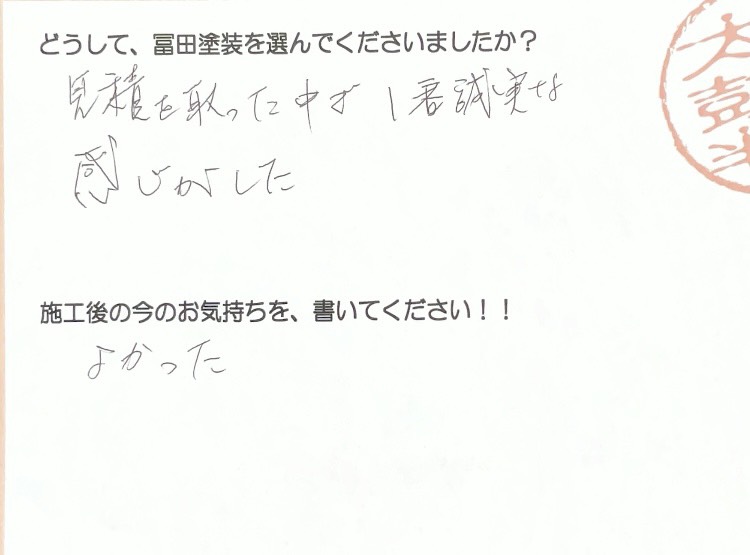 どうして、冨田塗装を選んでくださいましたか？
見積を取った中で１番誠実な
感じがした
施工後の今のお気持ちを、書いてください！！
よかった